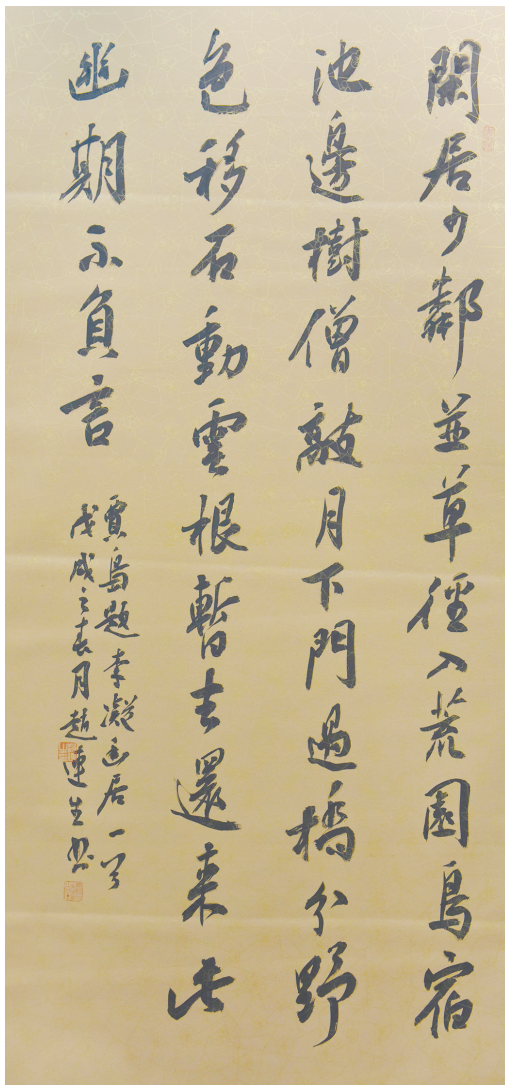 閑居少鄰並草徑入荒園鳥宿
池邊樹僧敲月下門過橋分野
色移石動雲根暫去還来此
幽期不負言
賈島題李凝幽居一首
戊戌之春月趙連生書